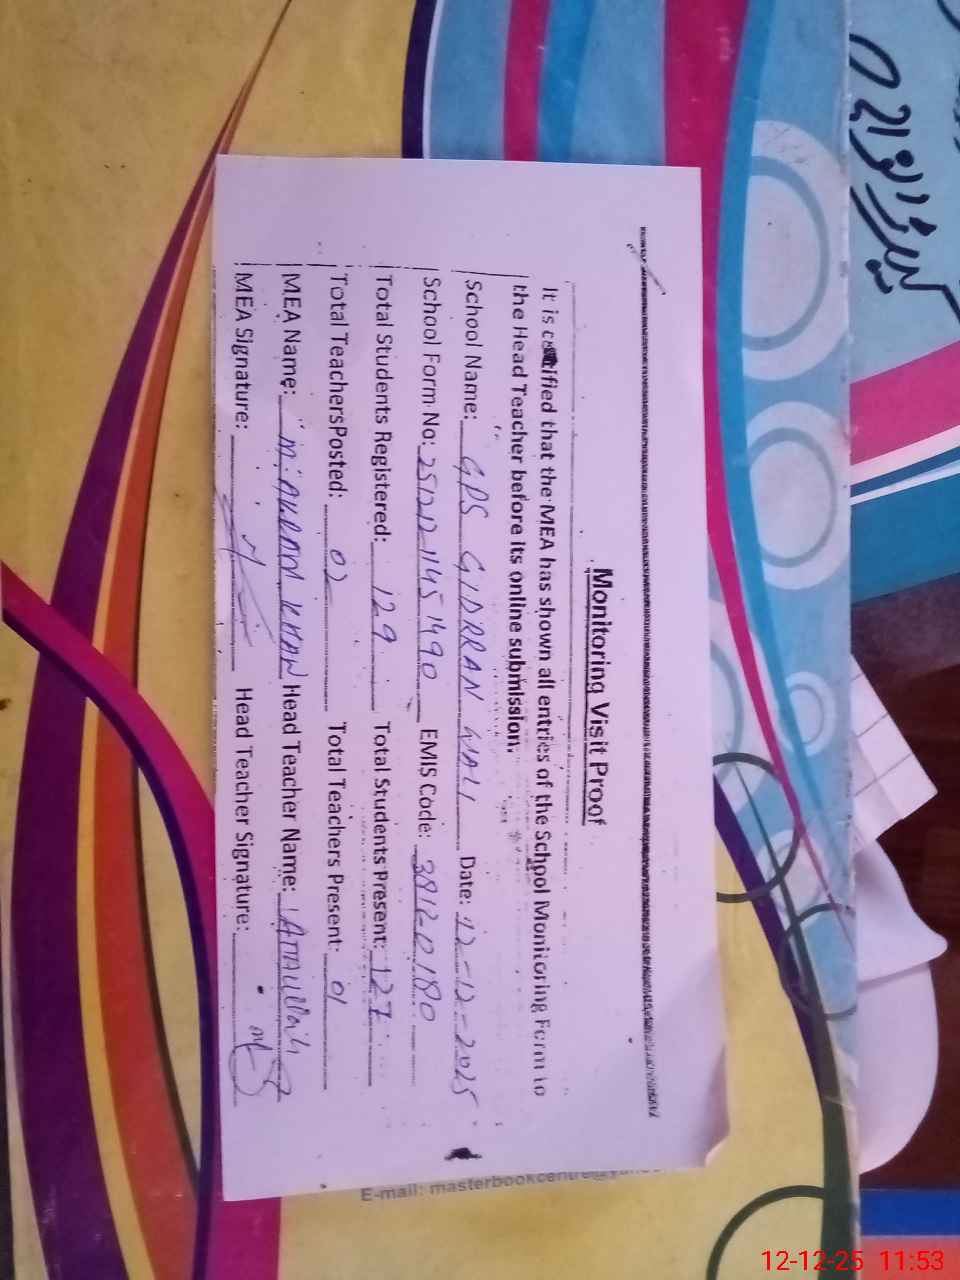 Monitoring Visit Proof
It is certified that the MEA has shown all entries of the School Monitoring Form to
the Head Teacher before its online submission.
School Name: GPS GIDRRAN WALI Date: 12-12-2025
School Form No: 25121211451490 EMIS Code: 38120180
Total Students Registered: 129 Total Students Present: 127
Total TeachersPosted: 02 Total Teachers Present: 01
MEA Name: KHAN Head Teacher Name: Attaullah
MEA Signature: Head Teacher Signature:
E-mail: masterbookcentre@
12-12-25 11:53